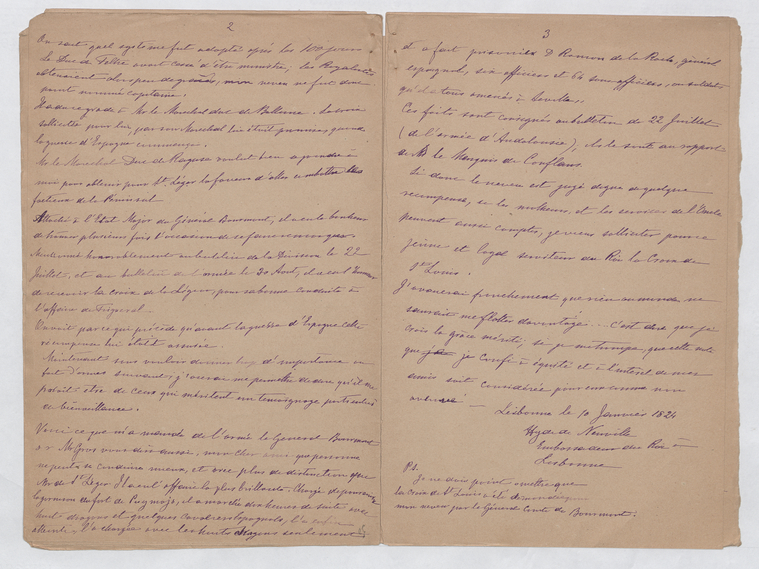 2
On sait quel système fut adopté après les 100 jours
le Duc de Feltre avant cessé d'être ministre; les Royalistes
obtenaient des grades, mon neveu ne fut donc
point nommé capitaine.
le Maréchal duc de Bellune
sollicitée pour lui par son Maréchal lui était promise, quand
la guerre d'Espagne commença.
Mr le Maréchal Duc de Raguse voulut bien se joindre à
moi pour obtenir pour St. Léger la faveur d'aller combattre les
factieux de la Péninsule
Attaché à l'Etat Major du Général Bourmont, il a eu le bonheur
de trouver plusieurs fois l'occasion de se faire remarquer.
Mentionné honorablement au bulletin de la Division le 22
Juillet, et au bulletin de l'armée le 30 Août, il a eu l'honneur
de recevoir la croix de la Légion, pour sa bonne conduite à
l'affaire de
On voit par ce qui précède qu'avant la guerre d'Espagne cette
récompense lui était assurée.
Maintenant sans vouloir donner trop d'importance au
fait d'armes suivant, j'oserai me permettre de dire qu'il me
paraît être de ceux qui méritent un témoignage particulier
de bienveillance.
Voici ce que m'a mandé de l'armée le Général Bourmont
"Mr Gros vous dira aussi, mon cher ami que personne
ne peut se conduire mieux, et avec plus de distinction que
Mr de St Léger. Il a eu l'affaire la plus brillante. Chargé de poursuivre
la garnison du fort de il a marché dix heures de suite avec
huit dragons et quelques cavaliers espagnols, l'a enfin
atteinte. l'a chargée avec les huit dragons seulement
3
et a fait prisonnier D Ramon de la Rocha, général
espagnol, six officiers et 64 sous officiers, ou soldats
qu'il a tous amenés à Séville".
Ces faits sont consignés au bulletin du 22 Juillet
(de l'armée d'Andalousie), ils le sont au rapport
de Mr le Marquis de Conflans.
Si donc le neveu est jugé digne de quelque
récompense, si les malheurs, et les services de l'Oncle
peuvent aussi compter, je viens solliciter pour ce
jeune et loyal serviteur du Roi la Croix de
St Louis.
J'avouerai franchement que rien au monde ne
saurait me flatter davantage... C'est donc que je
crois la grâce méritée, si je me trompe, que cette note
que je confie à l'équité et à l'intérêt de mes
amis soit considérée comme non
avenue —
Lisbonne le 10 Janvier 1824
Hyde de Neuville
Embassadeur du Roi à
Lisbonne
Ps.
Je ne dois point omettre que
la Croix de St Louis a été demandée
mon neveu par le Général Comte de Bourmont.